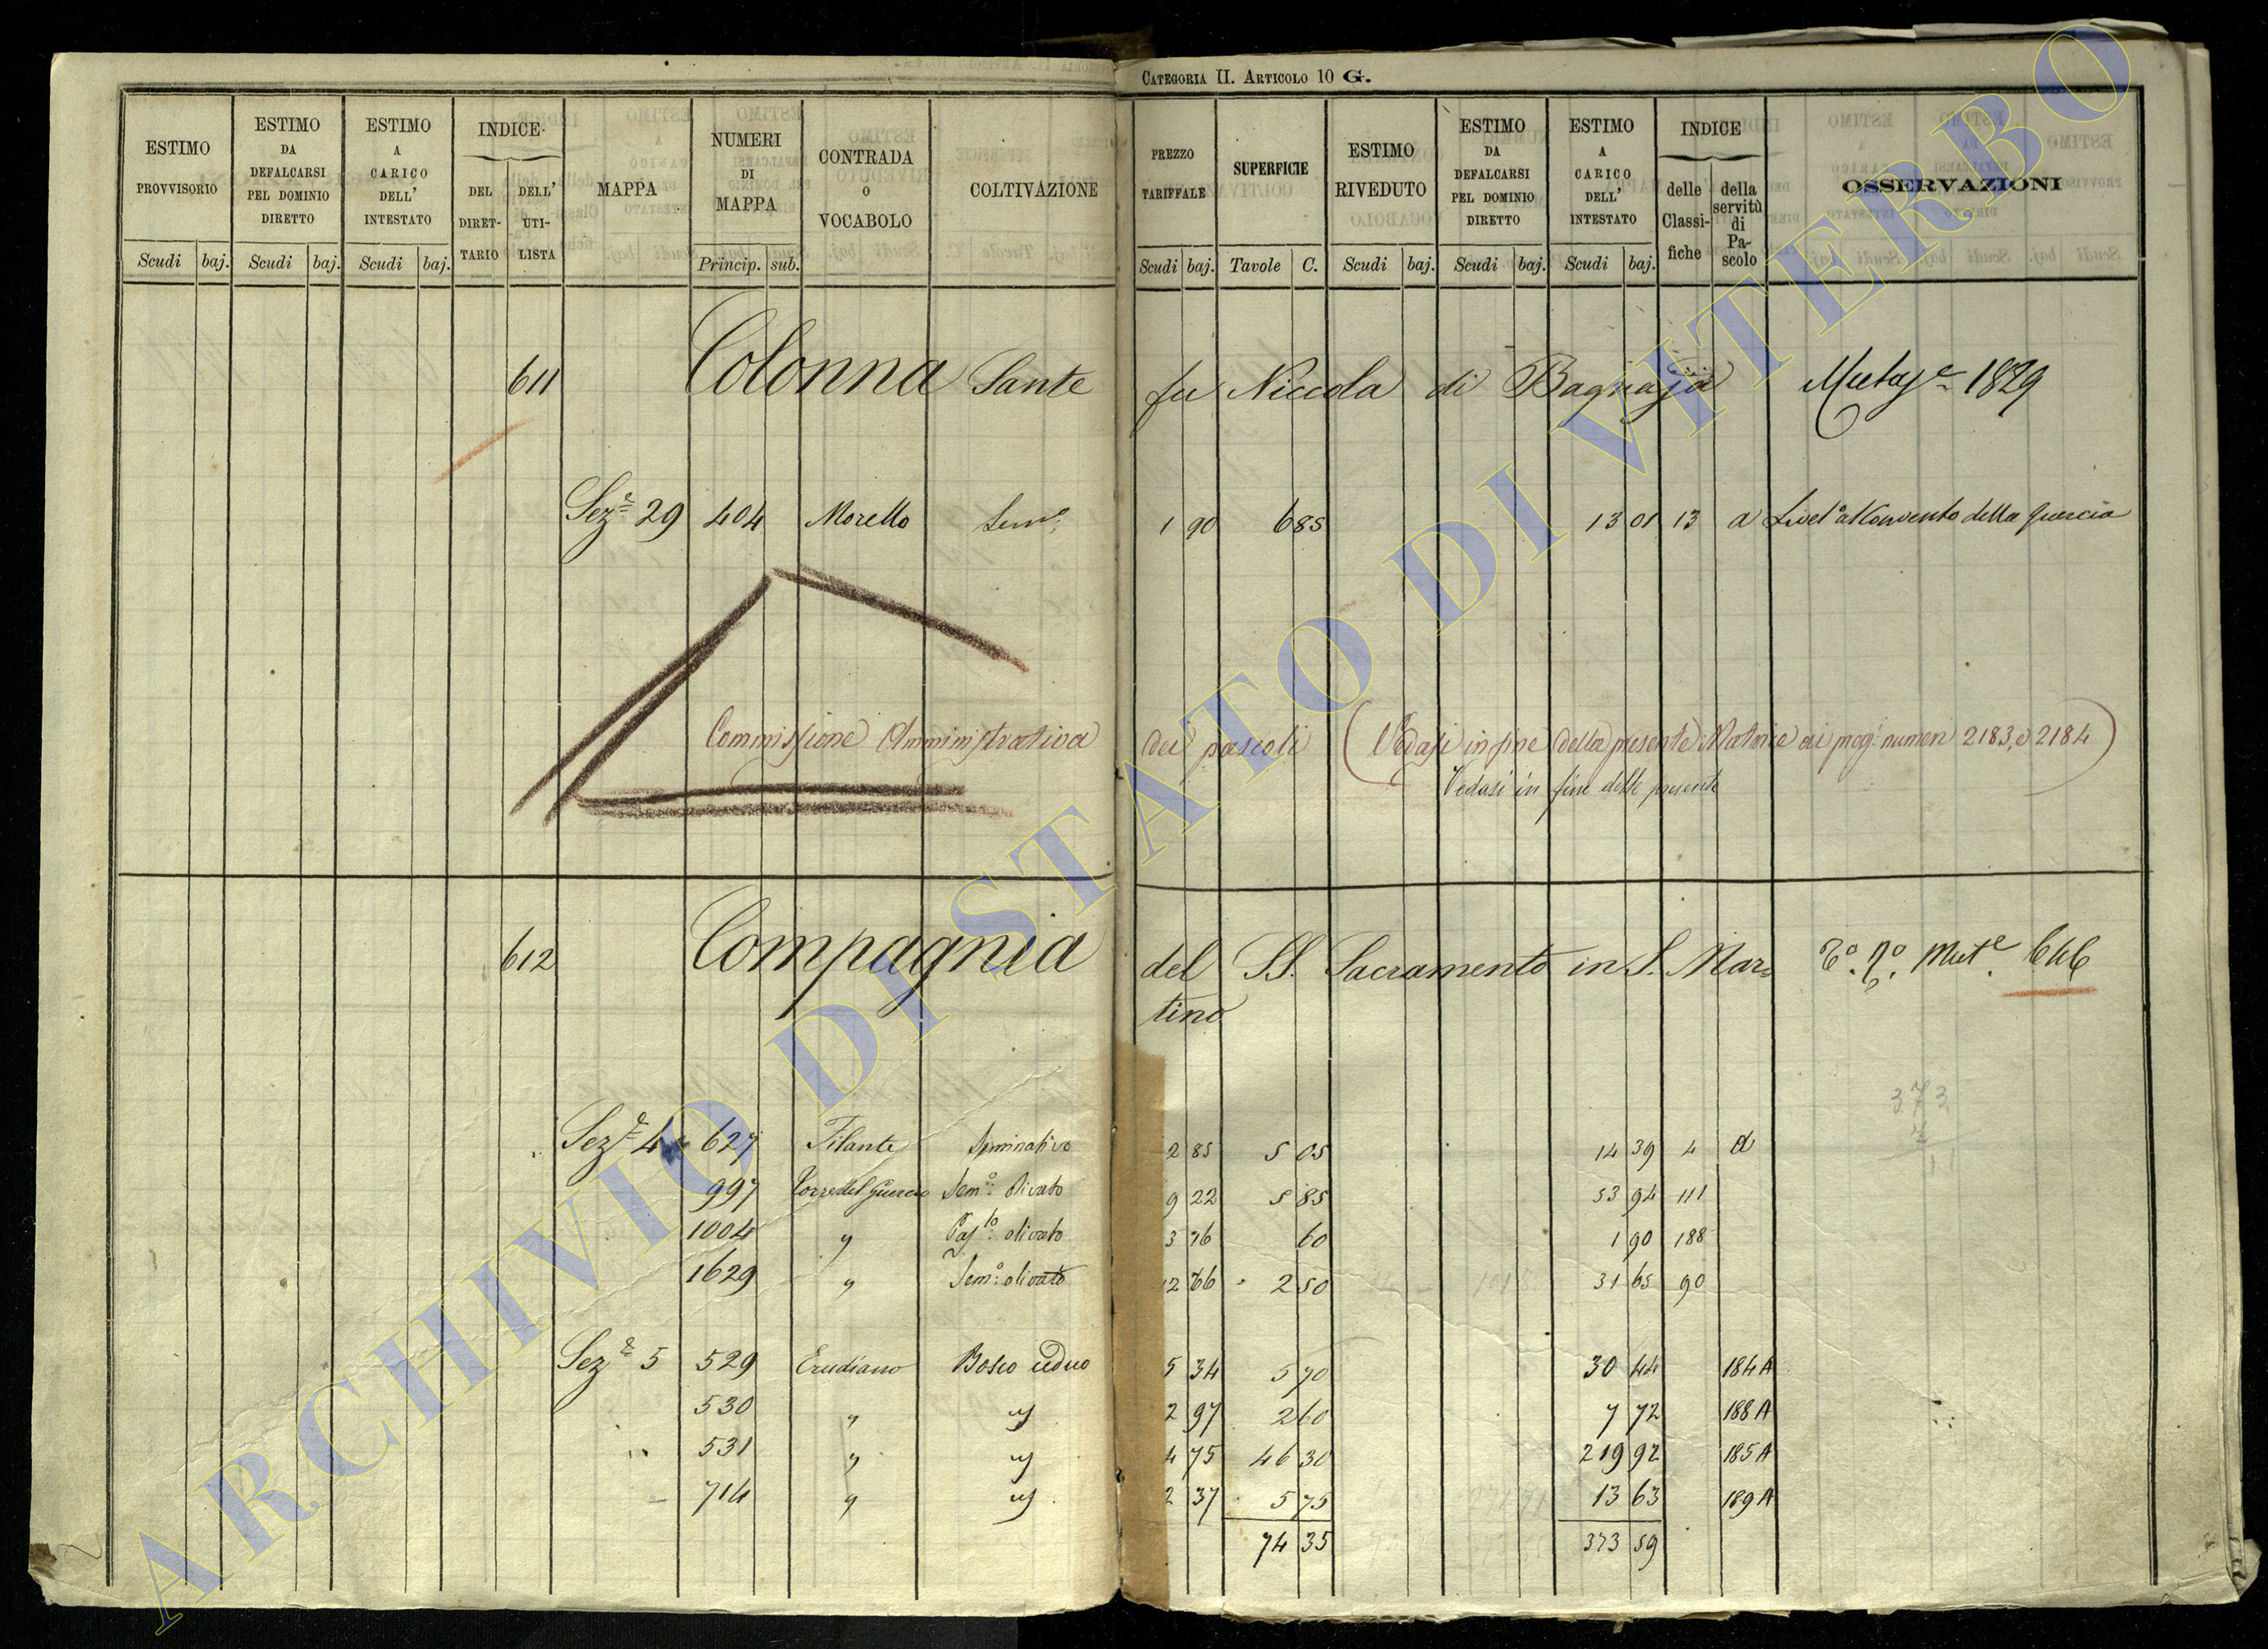 CATEGORIA II. ARTICOLO 10 G.
ESTIMO PROVVISORIO Scudi baj.
ESTIMO DA DEFALCARSI PEL DOMINIO DIRETTO Scudi baj.
ESTIMO A CARICO DELL' INTESTATO Scudi baj.
INDICE DEL DIRET- TARIO DELL' UTI- LISTA
MAPPA
NUMERI DI MAPPA Princip. sub.
CONTRADA O VOCABOLO
COLTIVAZIONE
PREZZO TARIFFALE Scudi baj.
SUPERFICIE Tavole C.
ESTIMO RIVEDUTO Scudi baj.
ESTIMO DA DEFALCARSI PEL DOMINIO DIRETTO Scudi baj.
ESTIMO A CARICO DELL' INTESTATO Scudi baj.
INDICE delle Classi- fiche della servitù di Pa- scolo
OSSERVAZIONI
611 Colonna Sante fu Niccola di Bagnaja 1829
Sez.e 29 404 Morello Sem.o 1 90 6 85 13 01 13 a Livel.o al Convento della Quercia
Commissione Amministrativa dei pascoli (Vedasi in fine della presente Matrice ai prog.i numeri 2183, e 2184)
Vedasi in fine della presente
612 Compagnia del SS. Sacramento in S. Mar=
tino
373
Sez.e 4 627 Filante Seminativo 2 85 5 05 14 39 4 a
997 Sem.o Olivato 9 22 5 85 53 94 111
1004 " Pas.to olivato 3 16 60 1 90 188
1629 " Sem.o olivato 12 66 2 50 31 65 90
Sez.e 5 529 Bosco ceduo 5 34 5 70 30 44 184 A
530 " " 2 97 2 60 7 72 188 A
531 " " 4 75 46 30 219 92 185 A
714 " " 2 37 5 75 13 63 189 A
74 35 373 59
ARCHIVIO DI STATO DI VITERBO